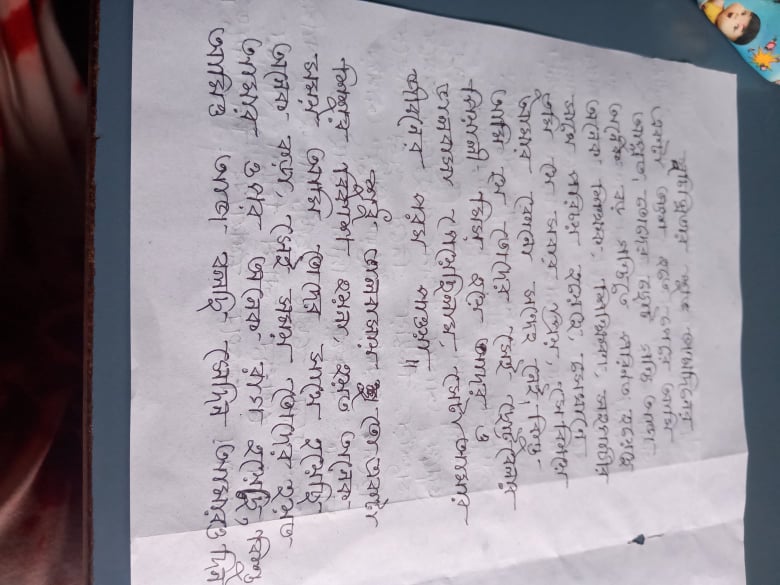 সুচাস্মিতার শুভ জন্মদিনের
একটা অংশ হতে পেরে আমি
আপ্লুত, তোদের ছোট গন্ডি আজ
অনেক বড় গন্ডিতে পরিনত হয়েছে
অনেক শিক্ষক, শিক্ষিকা, সহপাঠীর
সাথে পরিচয় হয়েছে, সেখানে
তুমি যে সবার প্রিয়, সে বিষয়ে
আমার কোনো সন্দেহ নেই, কিন্তু
আমি যে তোদের সেই ছোটবেলার
পিয়ালী মিস্ হয়ে আদর ও
ভালবাসা পেয়েছিলাম, সেটা আমার
জীবনের পরম পাওয়া॥
শুধু ভালবাসায় তো একটা
শিশুর বিকাশ হয়না, হয়ত অনেক
সময় আমি তোদের সাথে হয়েছি
অনেক কড়া, সেই সময় তোদের হয়ত
আমার ওপর অনেক রাগ হয়েছে, কিন্তু
আমিও আজ বলছি সেদিন আমারও দিন